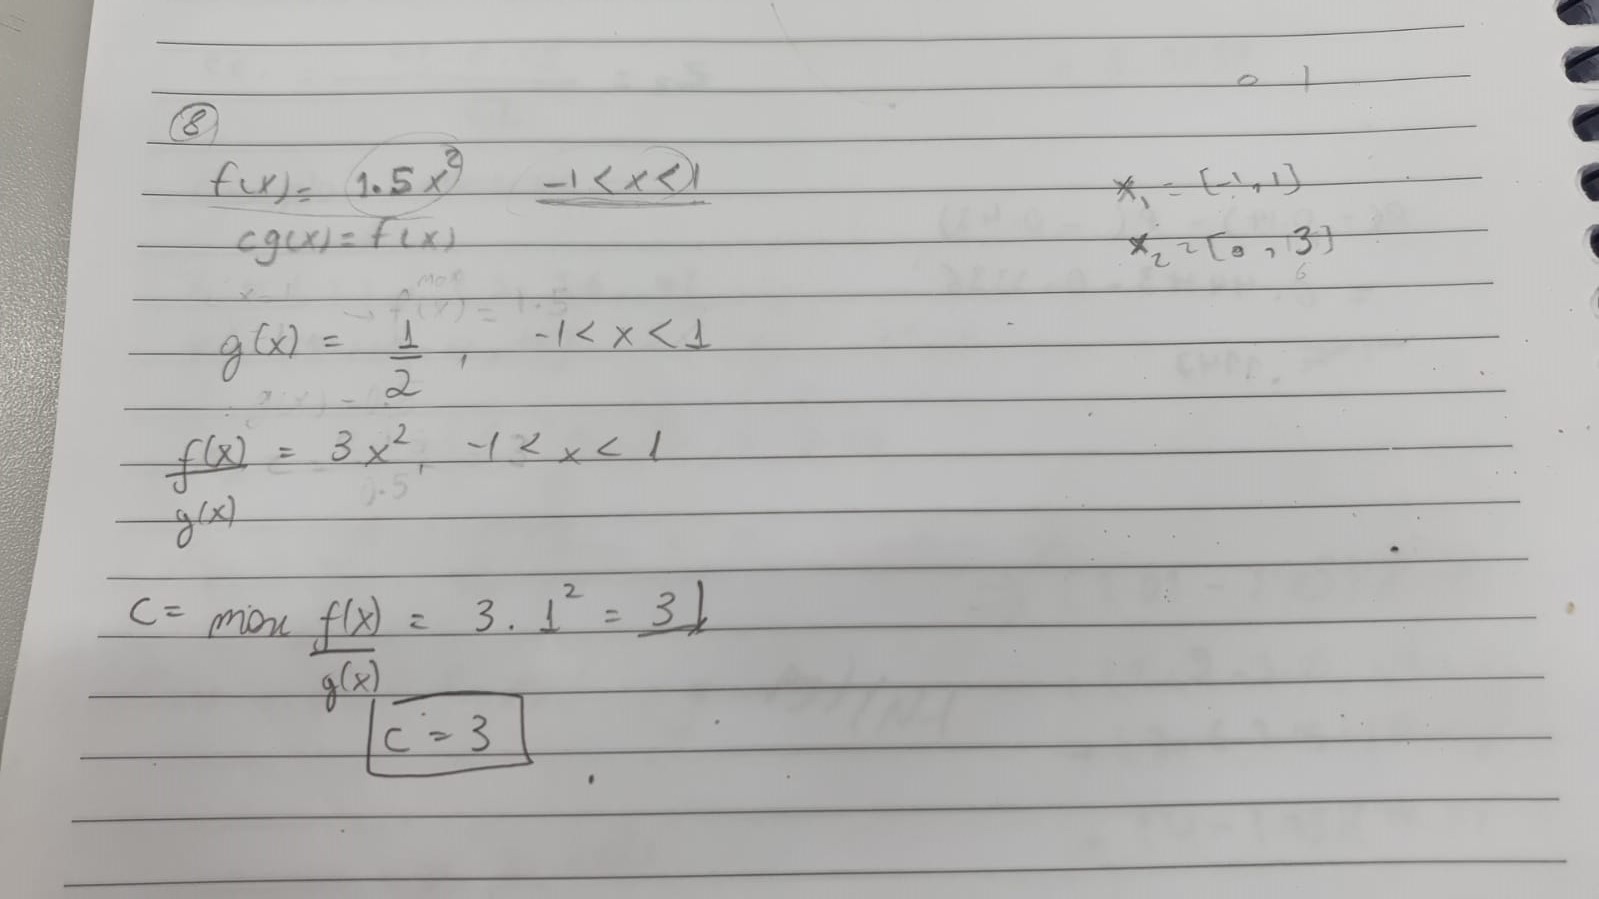 0 1
8
f(x) = 1.5x² -1 < x < 1
x₁ = [-1, 1]
cg(x) = f(x)
x₂ = [0, 3]
6
g(x) = 1/2, -1 < x < 1
f(x)/g(x) = 3x², -1 < x < 1
c = max f(x)/g(x) = 3.1² = 3
c = 3